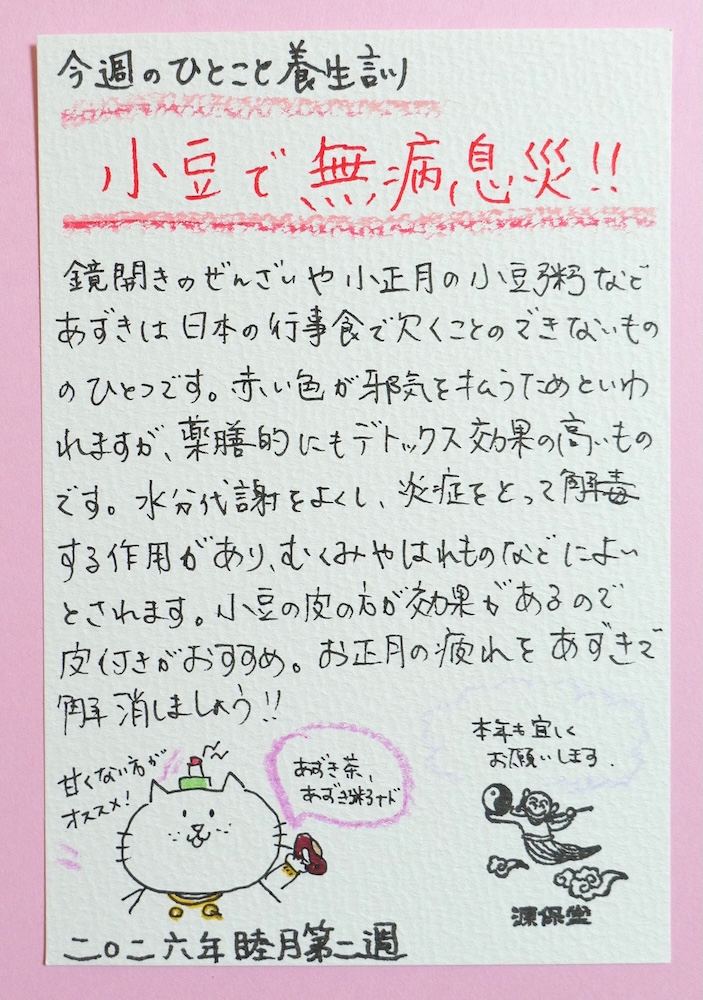 今週のひとこと養生訓
小豆で無病息災!!
鏡開きのぜんざいや小正月の小豆粥など
あずきは日本の行事食で欠くことのできないもの
のひとつです。赤い色が邪気を払うためといわ
れますが、薬膳的にもデトックス効果の高いもの
です。水分代謝をよくし、炎症をとって解毒
する作用があり、むくみやはれものなどによい
とされます。小豆の皮の方が効果があるので
皮付きがおすすめ。お正月の疲れをあずきで
解消しましょう!!
甘くない方が
オススメ!
あずき茶、
あずき粥ナド
本年も宜しく
お願いします.
源保堂
二〇二六年睦月第二週